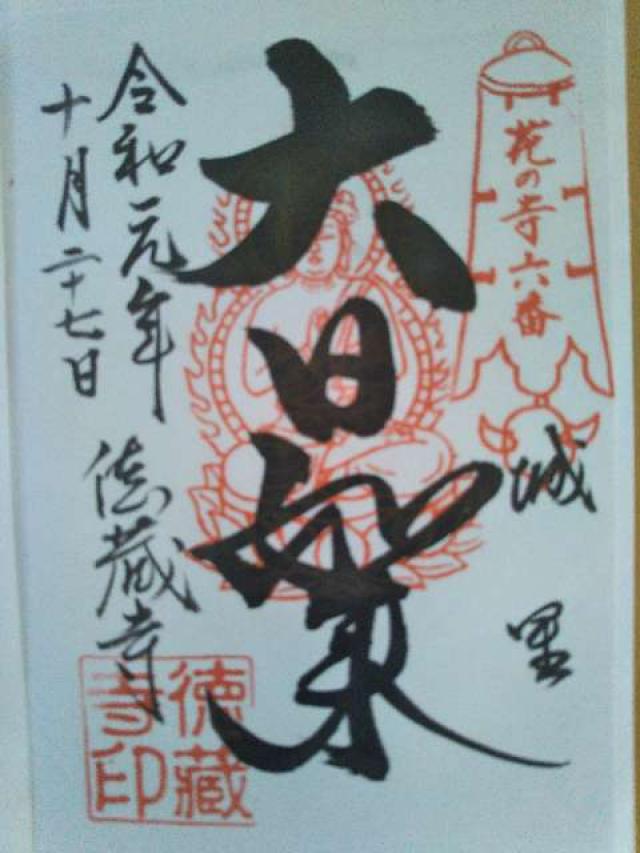 花の寺六番
城里
大日如来
令和元年
十月二十七日
徳蔵寺
徳藏
寺印